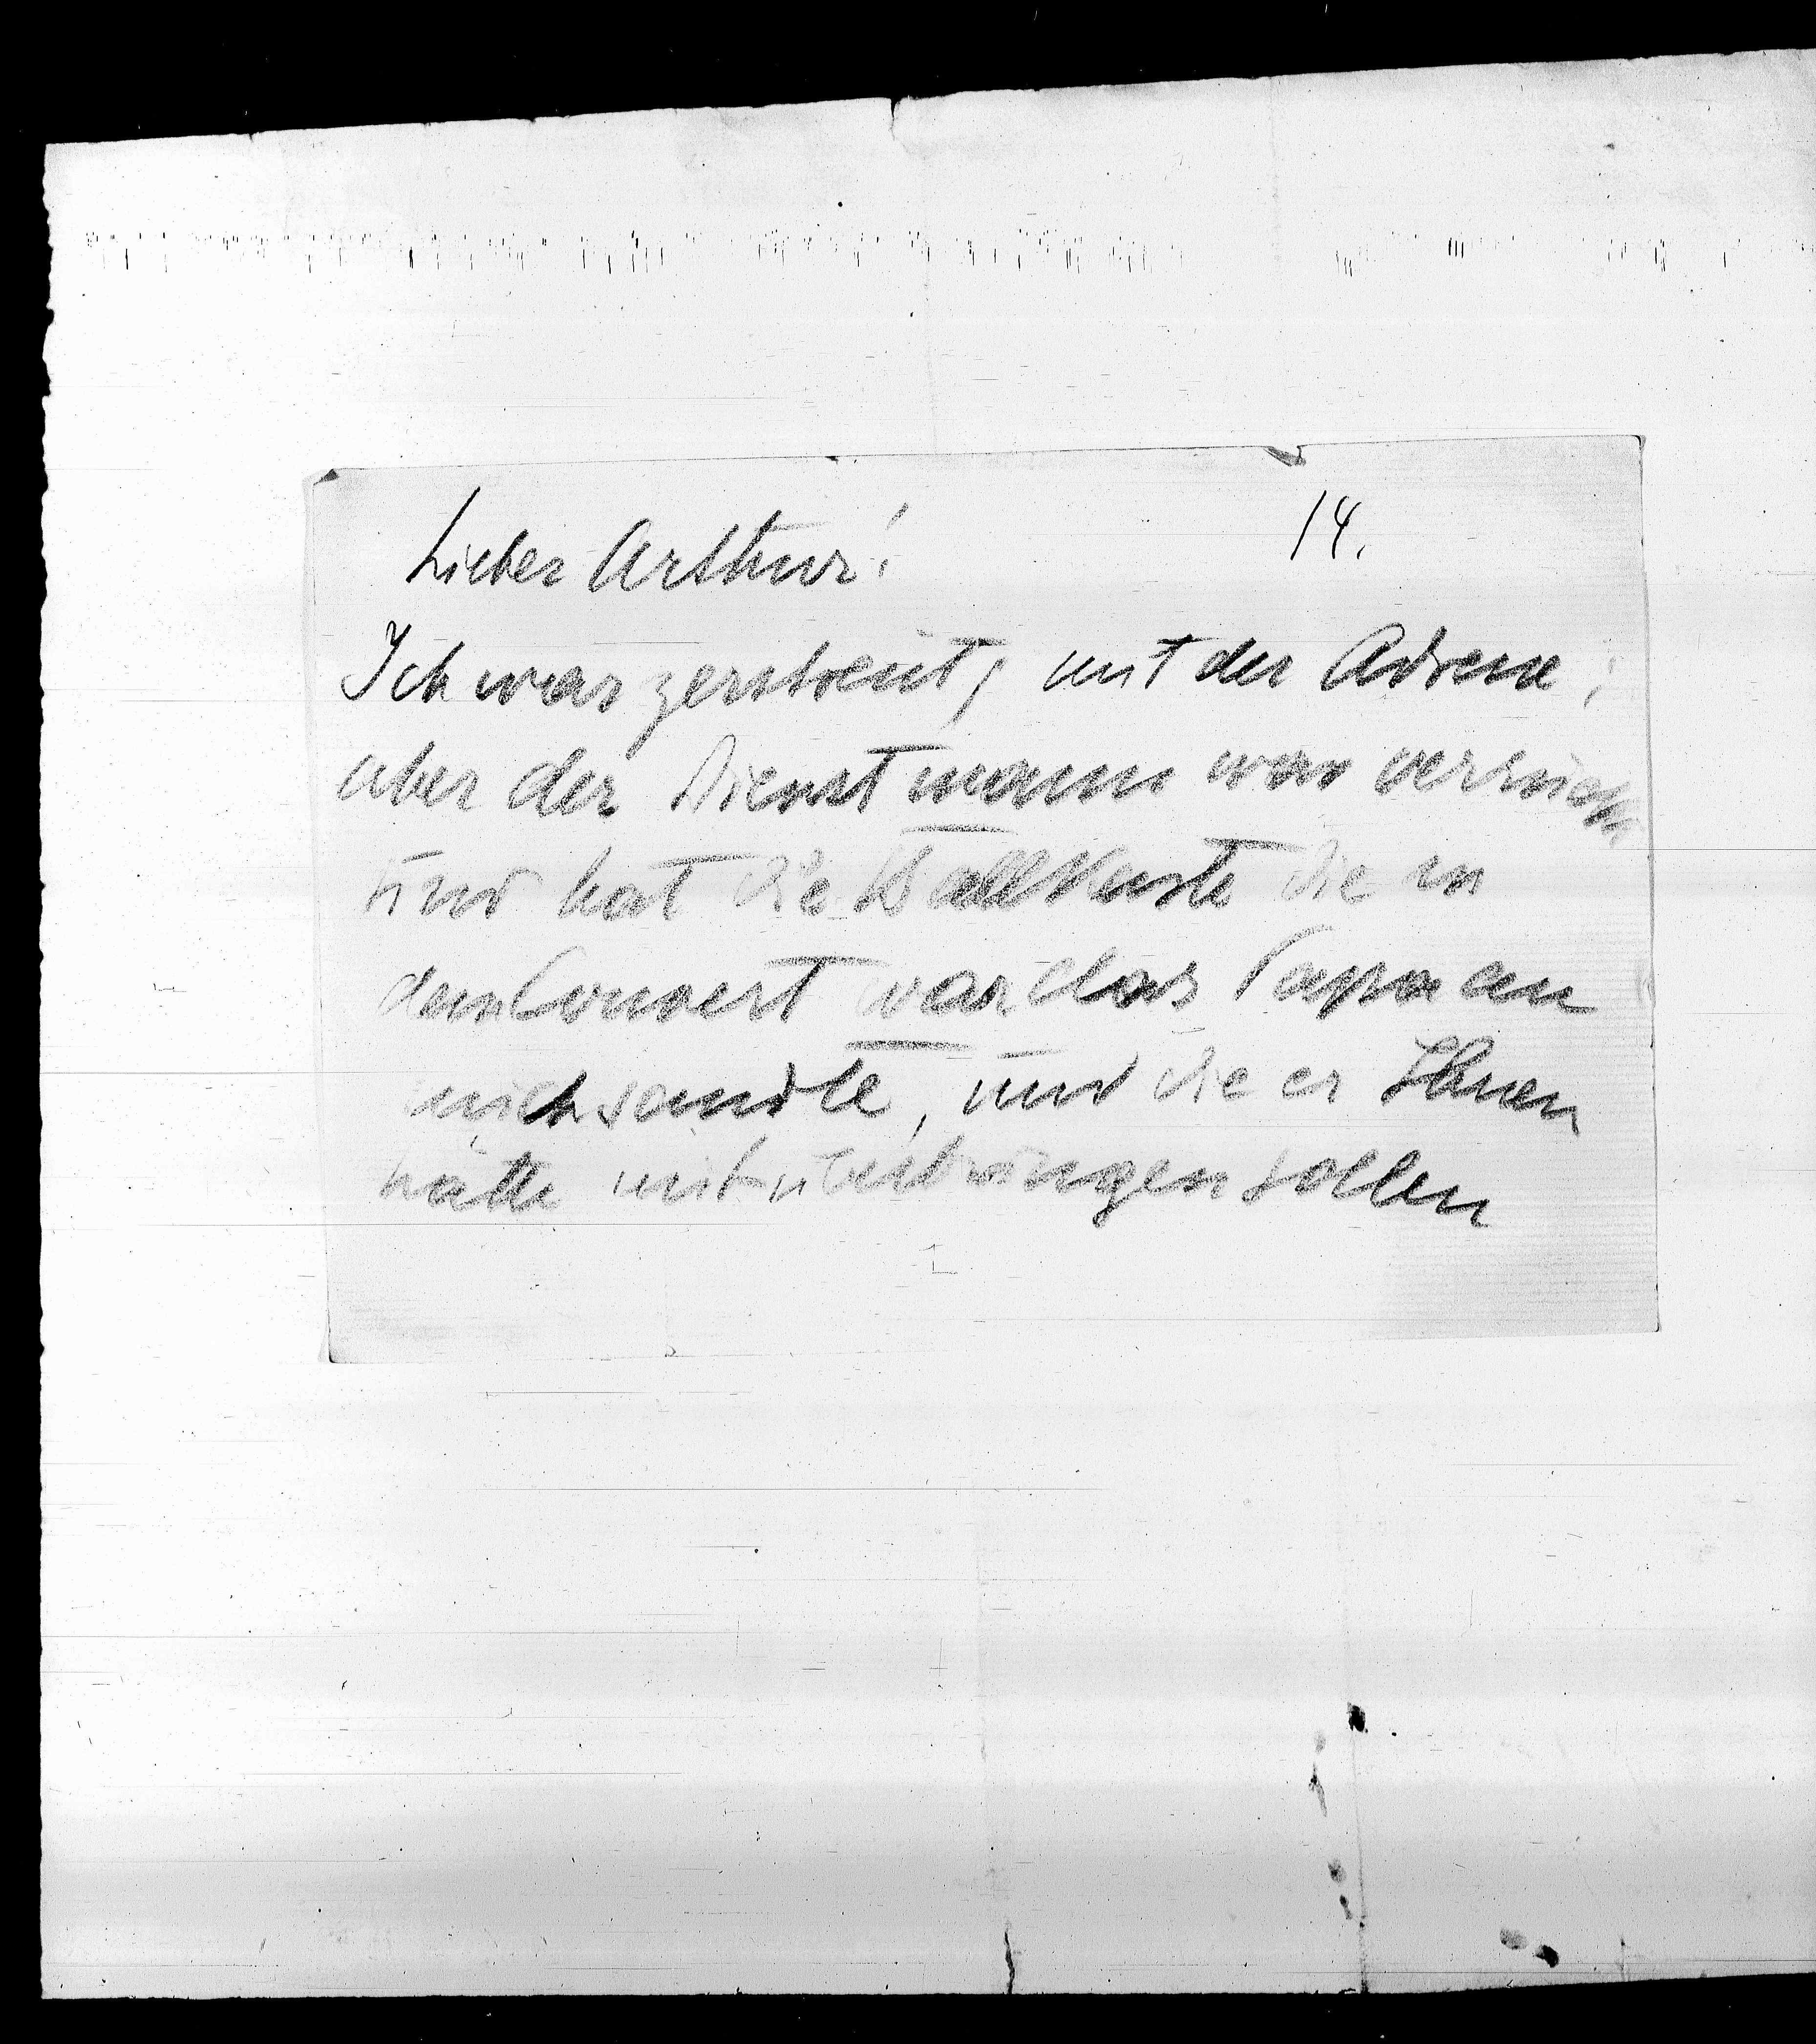 14.
Lieber Arthur!
Ich war zerstreut, mit der Adresse;
aber der Dienstmann war verrückt
und hat die Ballkarte die in
dem Couvert war das Papa an
mich sandte, und die er Ihnen
hätte mitüberbringen sollen